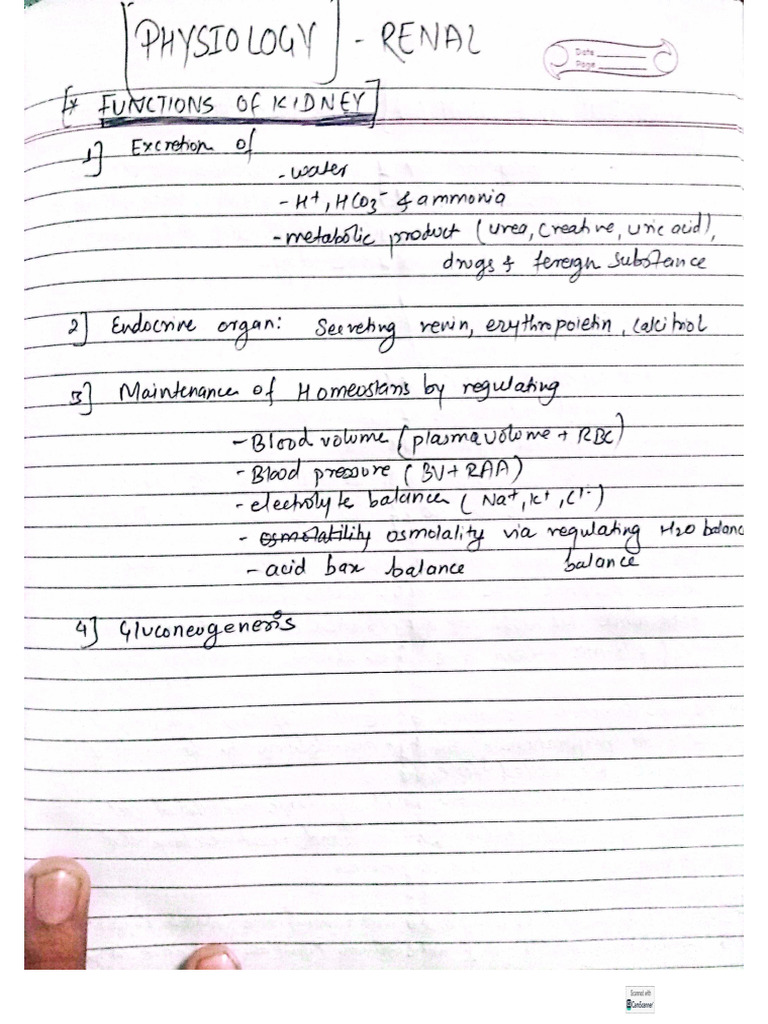 [PHYSIOLOGY] - RENAL
Date
Page
[* FUNCTIONS OF KIDNEY]
1] Excretion of
- water
- H+, HCO3- & ammonia
- metabolic product (urea, Creative, uric acid),
drugs & foreign substance
2] Endocrine organ: Secreting renin, erythropoietin, calcitriol
3] Maintenance of Homeostans by regulating
- Blood volume (plasma volume + RBC)
- Blood pressure (BV + RAA)
- electrolyte balance (Na+, K+, Cl-)
- osmolatility osmolality via regulating H2O balanc
- acid base balance balance
4] Gluconeogenesis
Scanned with
CamScanner